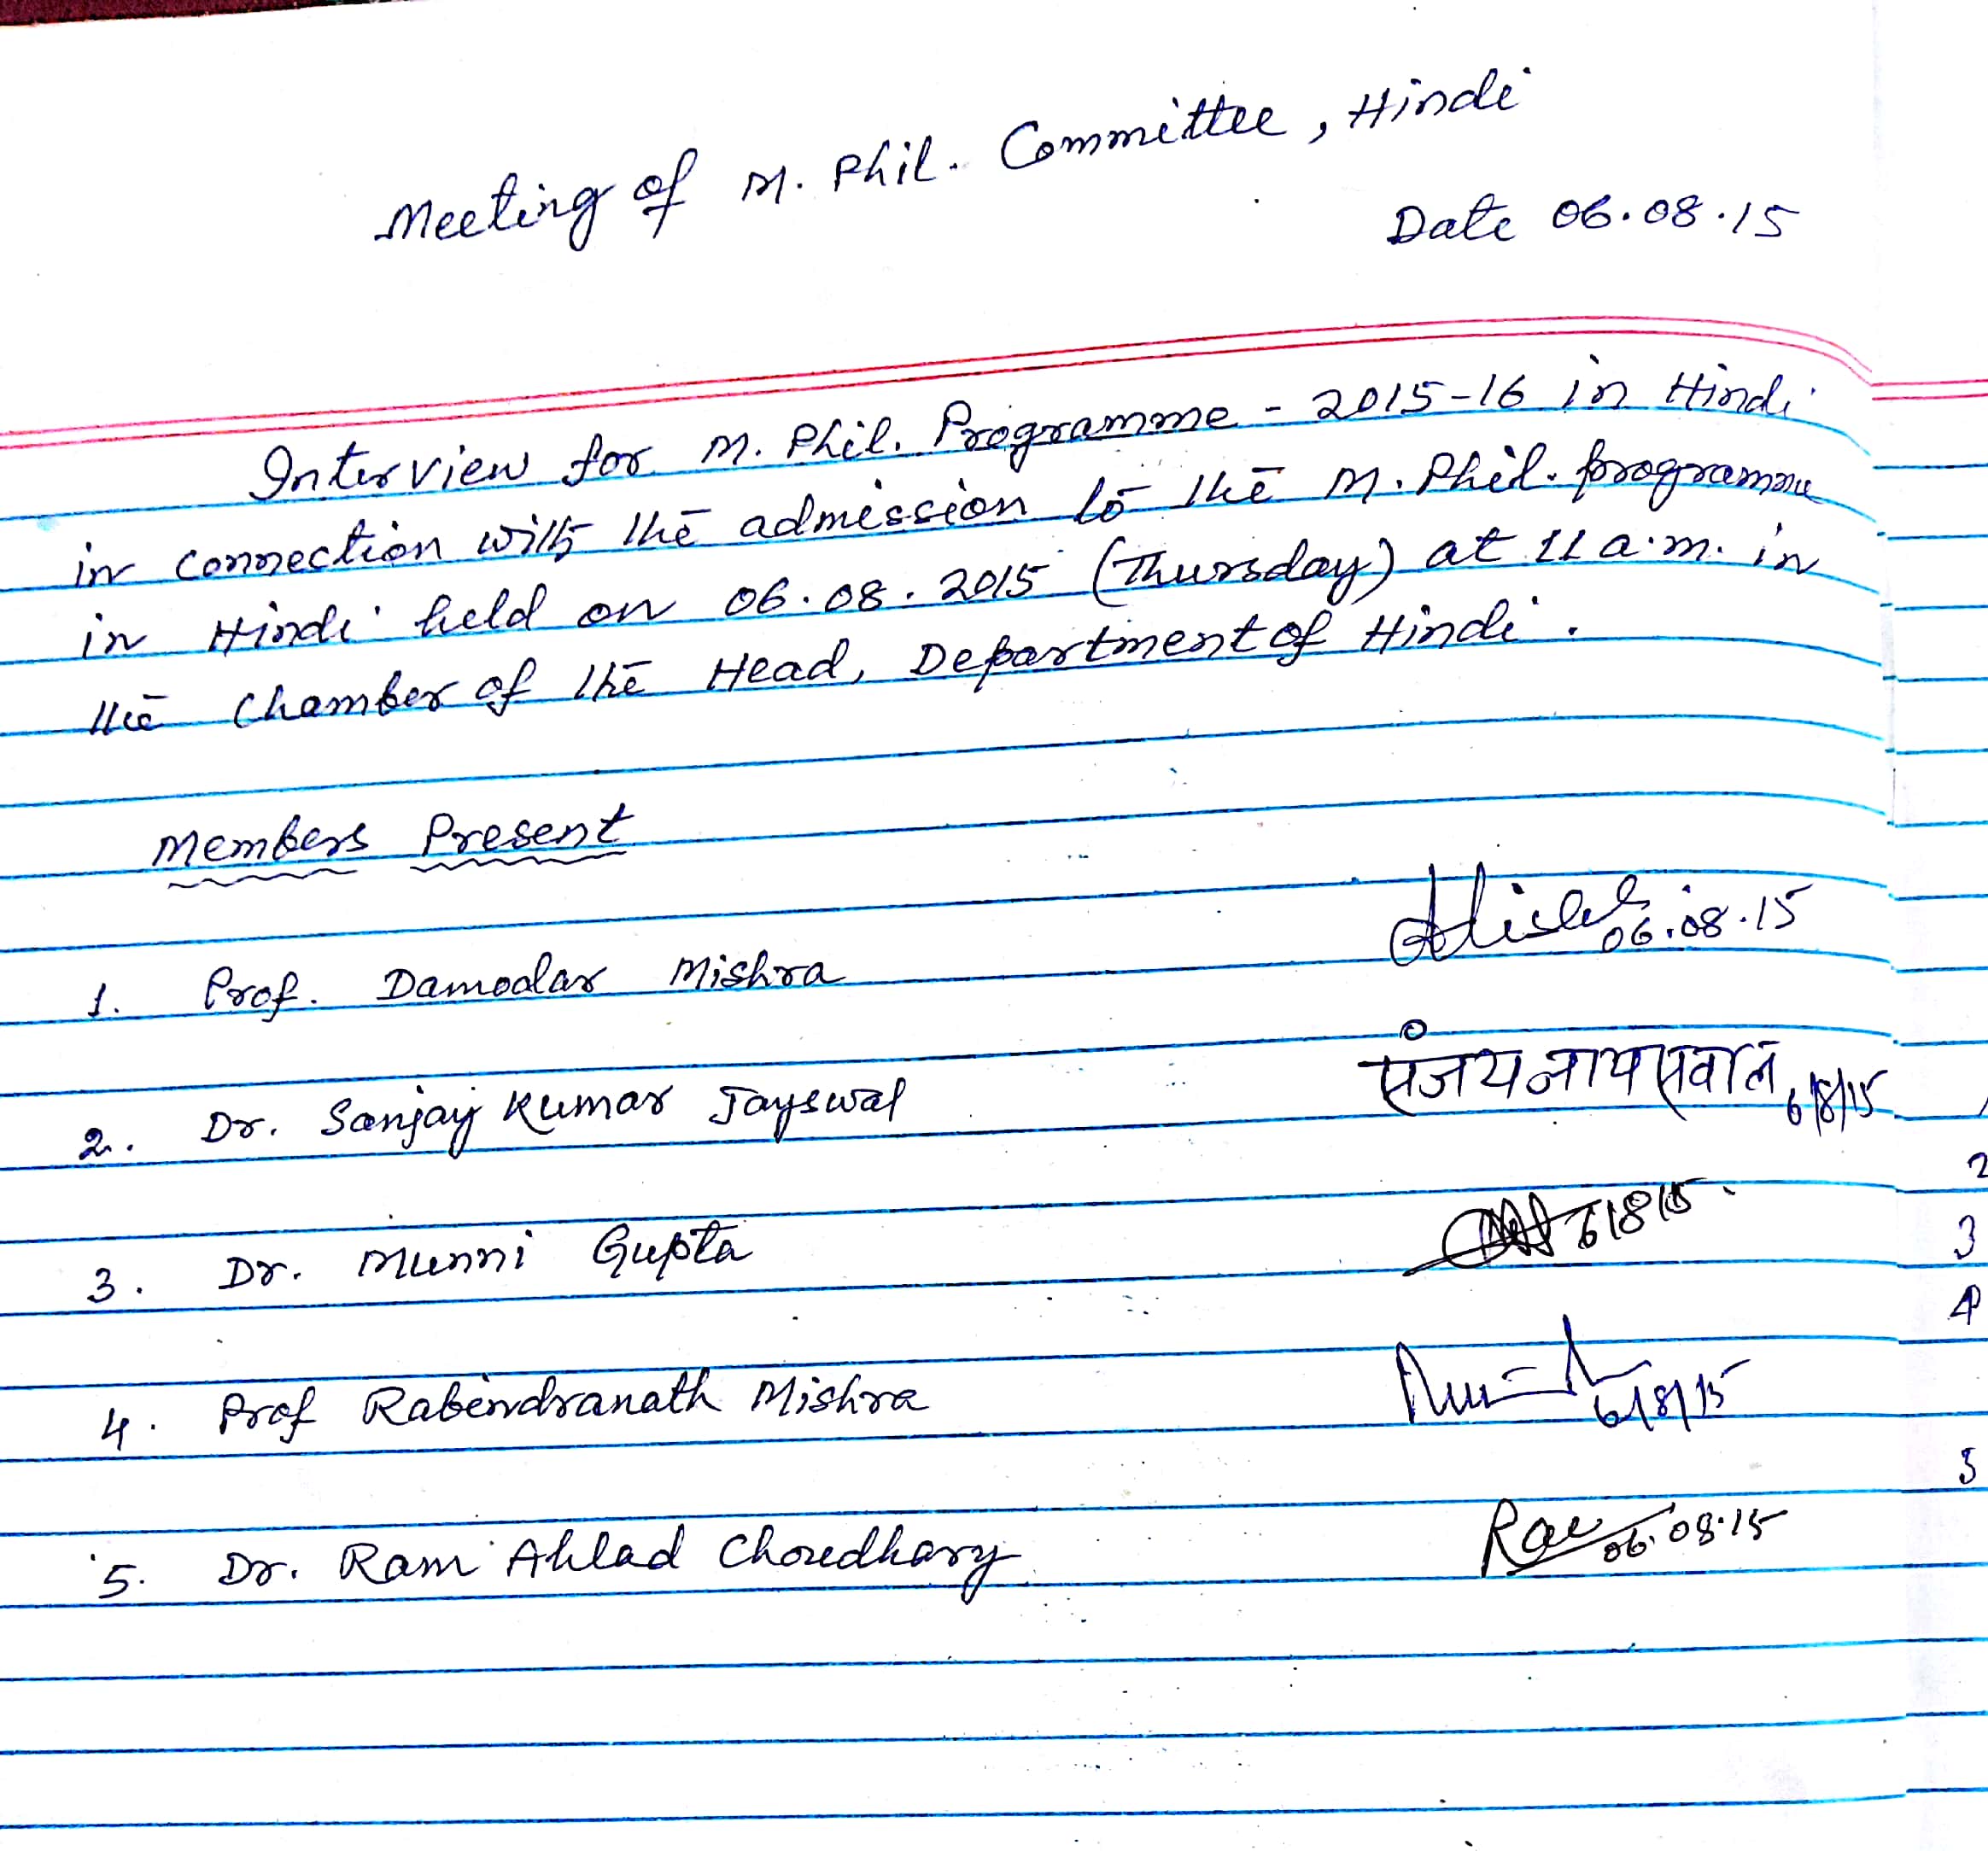 Meeting of M. Phil. Committee, Hindi
Date 06.08.15
Interview for M. Phil. Programme - 2015-16 in Hindi
in connection with the admission to the M. Phil. programme
in Hindi held on 06.08.2015 (Thursday) at 11 a.m. in
the Chamber of the Head, Department of Hindi.
Members Present
06.08.15
1. Prof. Damodar Mishra
संजय जायसवाल 6/8/15
2. Dr. Sanjay Kumar Jayswal
2
6/8/15
3
3. Dr. Munni Gupta
4
4. Prof Rabindranath Mishra
6/8/15
5
06.08.15
5. Dr. Ram Ahlad Choudhary